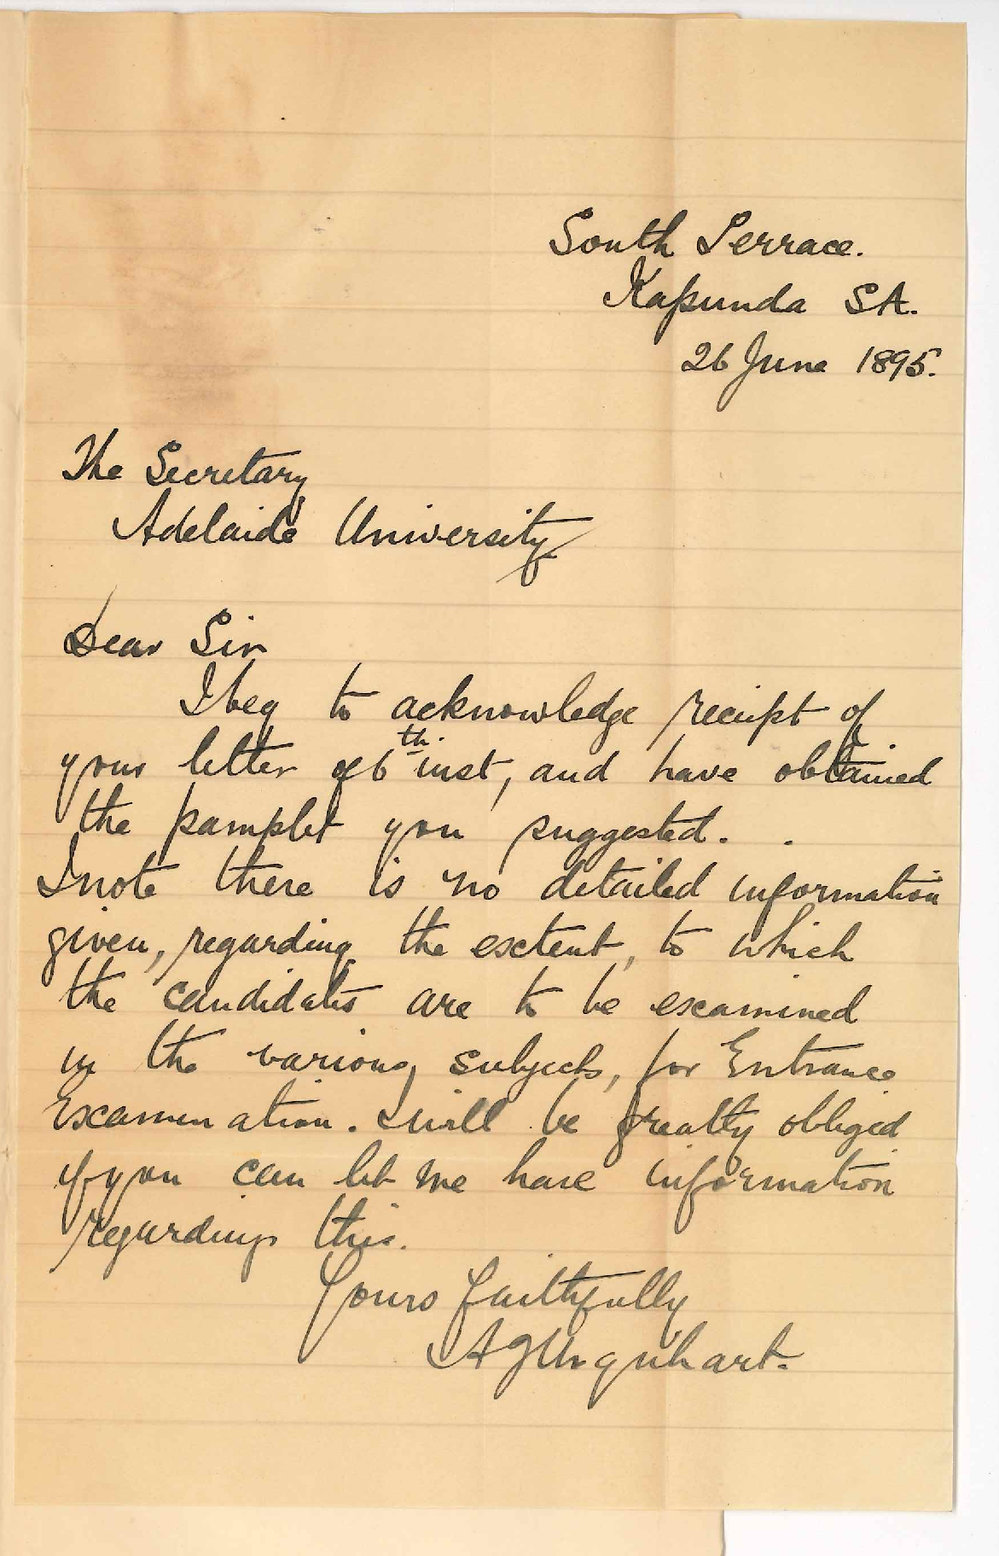 South Terrace.
Kapunda SA.
26 June 1895.
The Secretary
Adelaide University
Dear Sir
I beg to acknowledge receipt of
your letter of 6th inst, and have obtained
the pamplet you suggested.
I note there is no detailed information
given, regarding the extent, to which
the candidates are to be examined
in the various subjects, for Entrance
Examination. I will be greatly obliged
if you can let me have information
regarding this.
Yours faithfully
A J Urquhart.